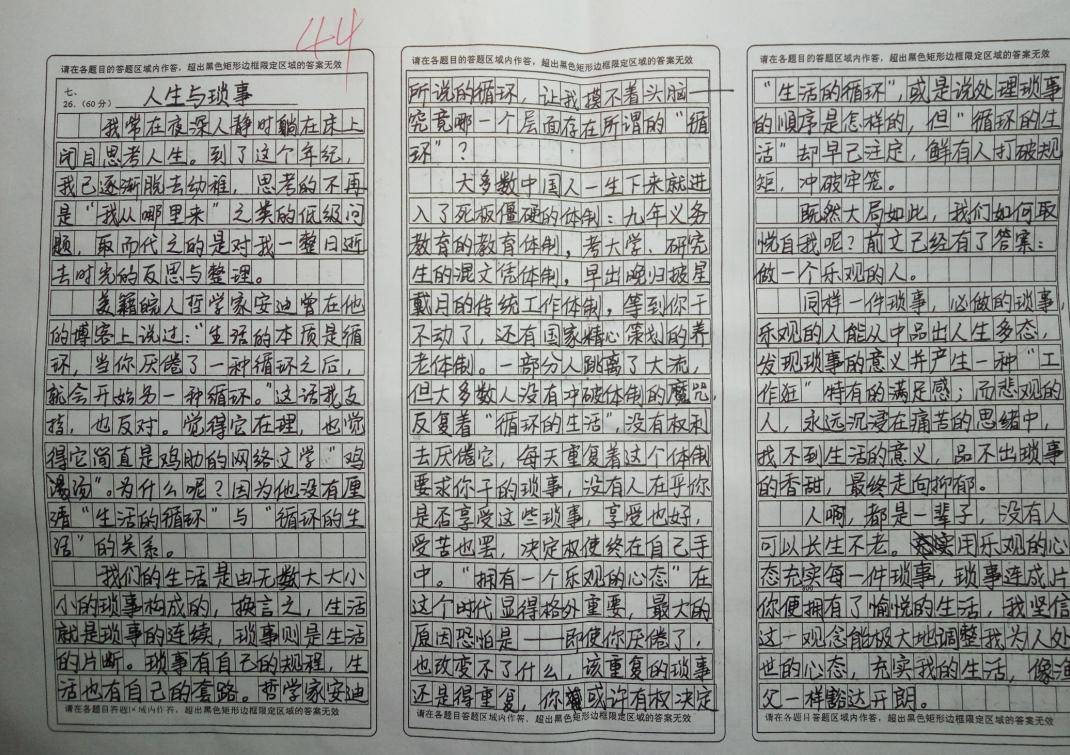 44
请在各题目的答题区域内作答，超出黑色矩形边框限定区域的答案无效
七、
26.（60分） 人生与琐事
我常在夜深人静时躺在床上
闭目思考人生。到了这个年纪，
我已逐渐脱去幼稚，思考的不再
是“我从哪里来”之类的低级问
题，取而代之的是对我一整日逝
去时光的反思与整理。
美籍皖人哲学家安迪曾在他
的博客上说过：“生活的本质是循
环，当你厌倦了一种循环之后，
就会开始另一种循环。”这话我支
持，也反对。觉得它在理，也觉
得它简直是鸡肋的网络文学“鸡
汤”。为什么呢？因为他没有厘
清“生活的循环”与“循环的生
活”的关系。
我们的生活是由无数大大小
小的琐事构成的，换言之，生活
就是琐事的连续，琐事则是生活
的片断。琐事有自己的规程，生
活也有自己的套路。哲学家安迪
请在各题目的答题区域内作答，超出黑色矩形边框限定区域的答案无效
请在各题目的答题区域内作答，超出黑色矩形边框限定区域的答案无效
所说的循环，让我摸不着头脑——
究竟哪一个层面存在所谓的“循
环”？
大多数中国人一生下来就进
入了死板僵硬的体制：九年义务
教育的教育体制，考大学、研究
生的混文凭体制，早出晚归披星
戴月的传统工作体制，等到你干
不动了，还有国家精心策划的养
老体制。一部分人跳离了大流，
但大多数人没有冲破体制的魔咒，
反复着“循环的生活”，没有权利
去厌倦它，每天重复着这个体制
要求你干的琐事，没有人在乎你
是否享受这些琐事，享受也好，
受苦也罢，决定权使终在自己手
中。“拥有一个乐观的心态”在
这个时代显得格外重要，最大的
原因恐怕是——即使你厌倦了，
也改变不了什么，该重复的琐事
还是得重复，你或许有权决定
请在各题目的答题区域内作答，超出黑色矩形边框限定区域的答案无效
请在各题目的答题区域内作答，超出黑色矩形边框限定区域的答案无效
“生活的循环”，或是说处理琐事
的顺序是怎样的，但“循环的生
活”却早已注定，鲜有人打破规
矩，冲破牢笼。
既然大局如此，我们如何取
悦自我呢？前文已经有了答案：
做一个乐观的人。
同样一件琐事，必做的琐事，
乐观的人能从中品出人生多态，
发现琐事的意义并产生一种“工
作狂”特有的满足感；而悲观的
人，永远沉浸在痛苦的思绪中，
找不到生活的意义，品不出琐事
的香甜，最终走向抑郁。
人啊，都是一辈子，没有人
可以长生不老。用乐观的心
态充实每一件琐事，琐事连成片
800
你便拥有了愉悦的生活，我坚信
这一观念能极大地调整我为人处
世的心态，充实我的生活，像渔
父一样豁达开朗。
请在各题目的答题区域内作答，超出黑色矩形边框限定区域的答案无效